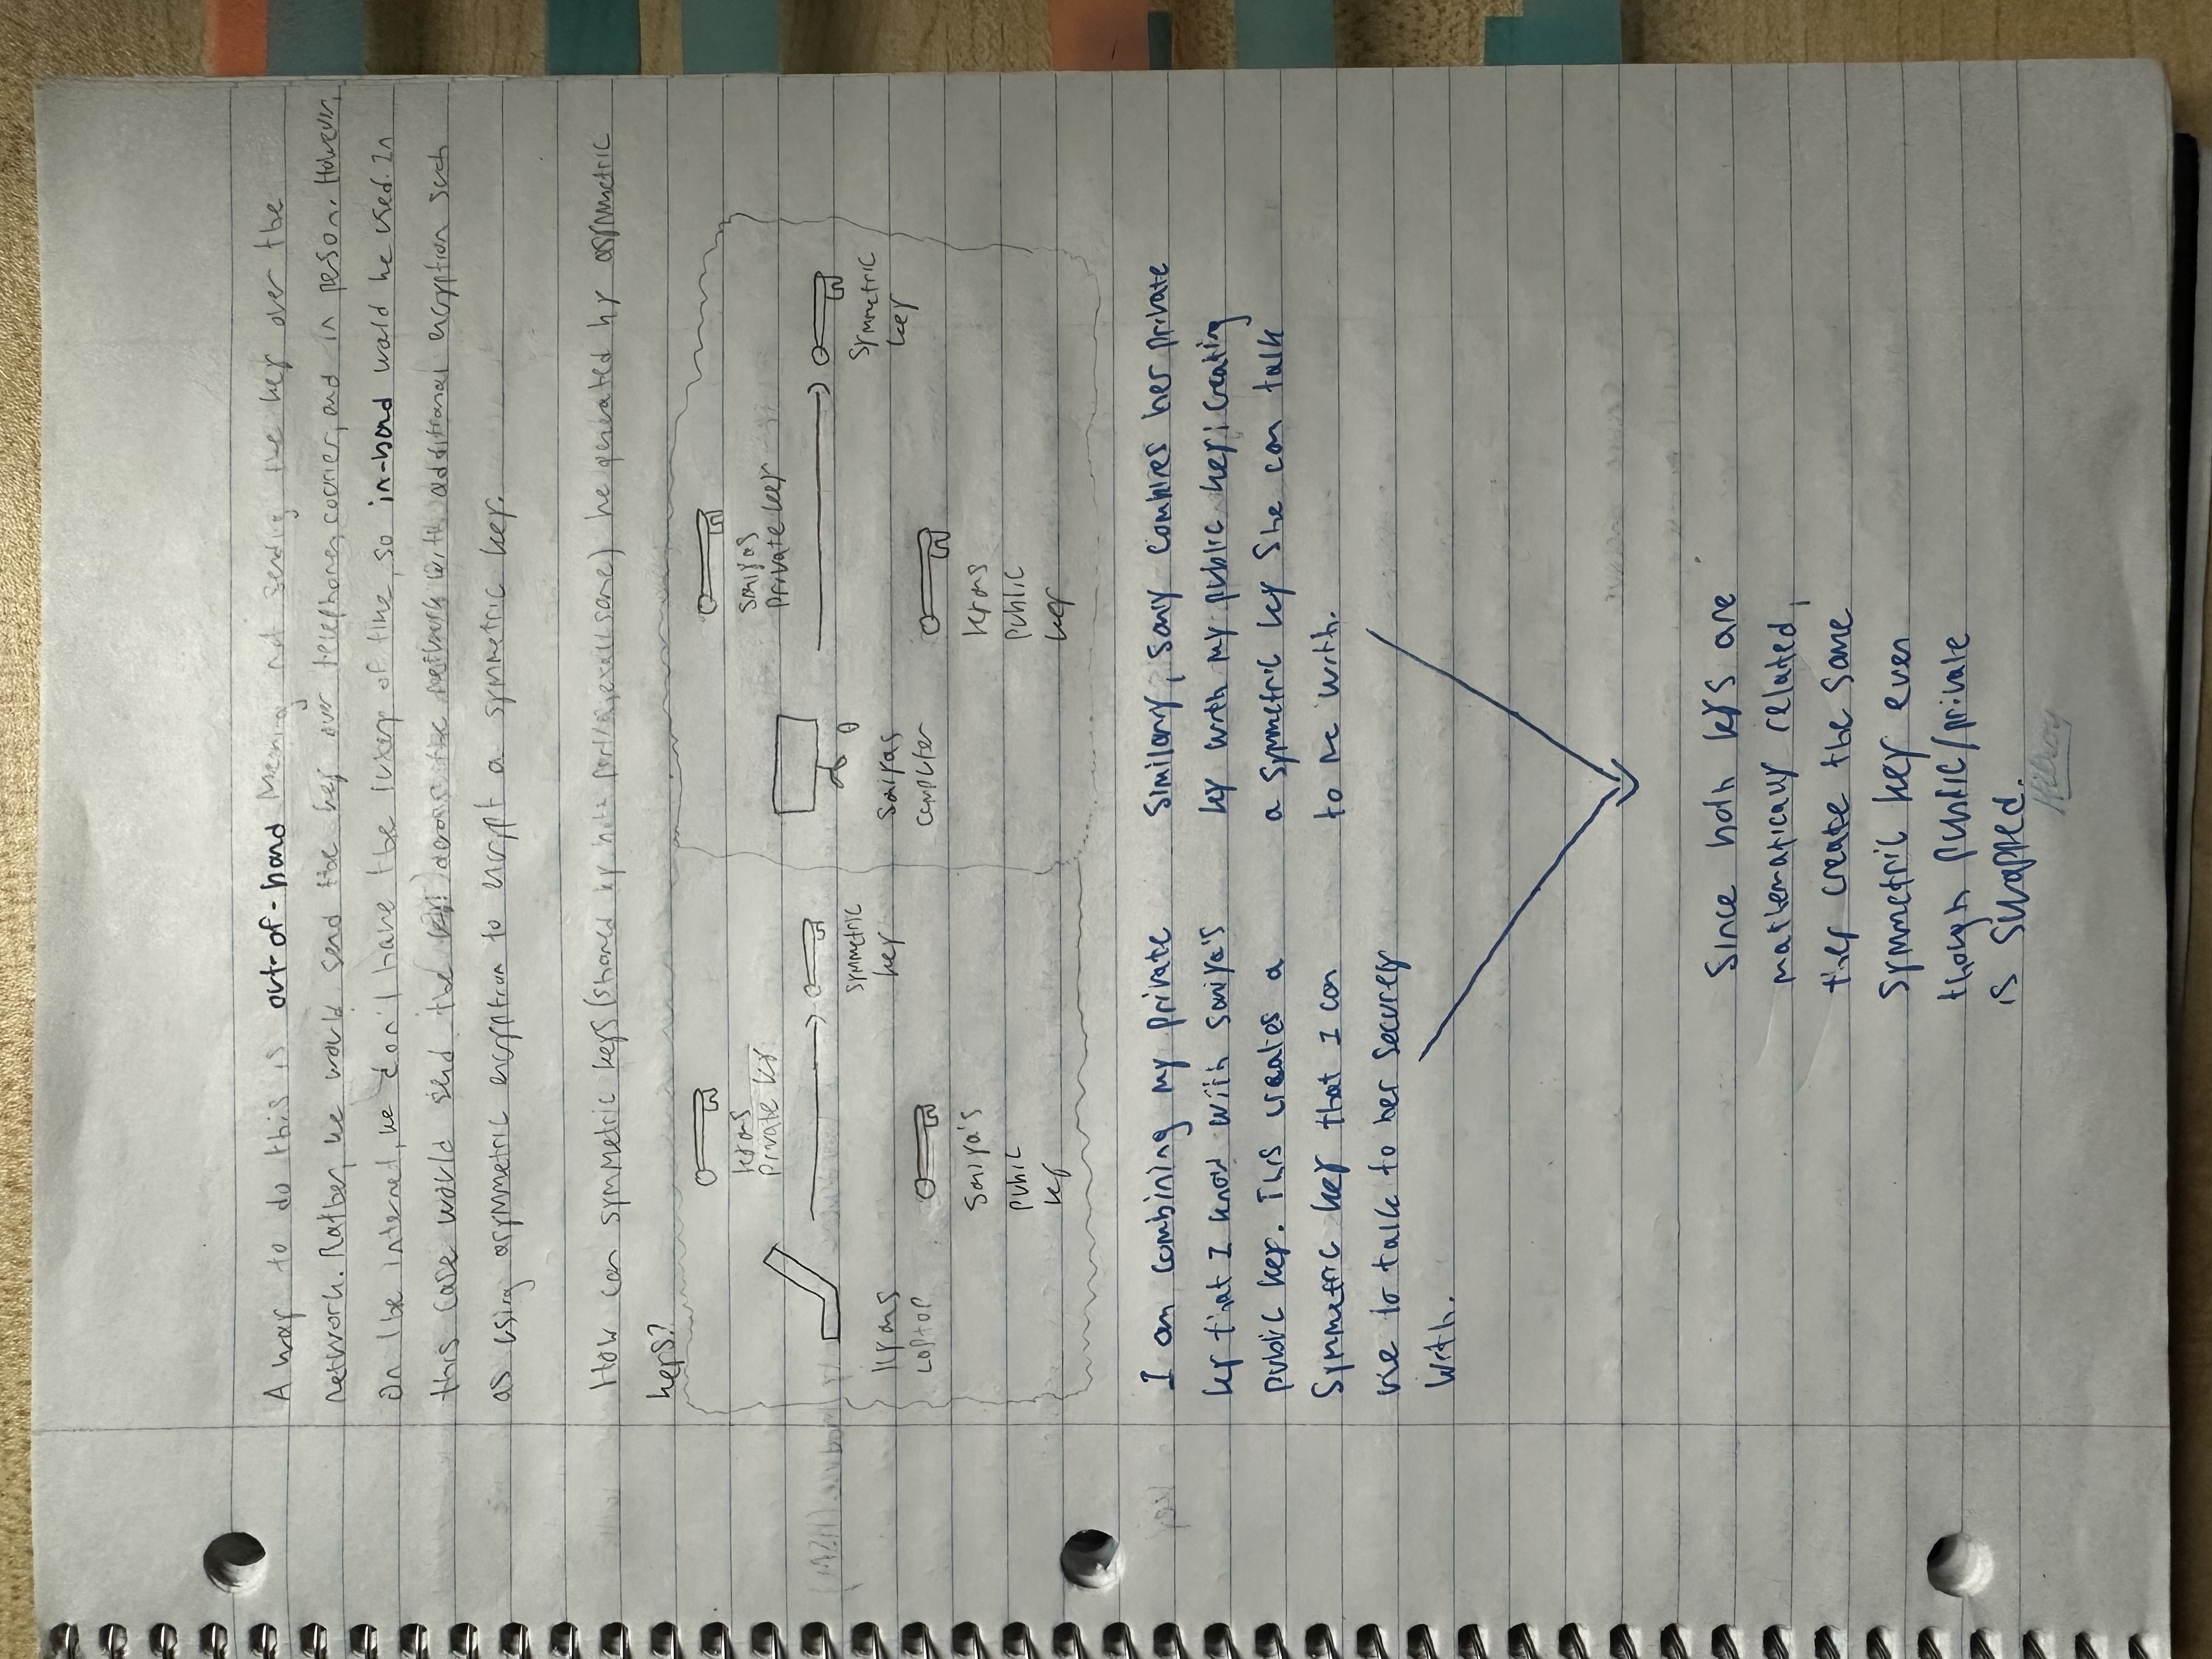 A way to do this is out-of-band Meaning not sending the key over the
network. Rather, we would send the key over telephone, courier, and in person. However,
on the internet, we don't have the luxery of time, so in-band would be used. In
this case would send the key across the network with additional encryption such
as using asymmetric encryption to encrypt a symmetric key.
How can symmetric keys (shared by both parties, same) be generated by asymmetric
keys?
Kyans
Private key
Symmetric
key
Kyans
Laptop
Saniya's
public
key
Saniyas
Private key
Symmetric
key
Saniyas
computer
Kyans
public
key
I am combining my private
key that I know with Saniya's
public key. This creates a
symmetric key that I can
use to talk to her securely
with.
Similarly, Saniy combines her private
key with my public key, creating
a symmetric key she can talk
to me with.
Since both keys are
mathematically related,
they create the same
symmetric key even
though public/private
is swapped.
Hilroy